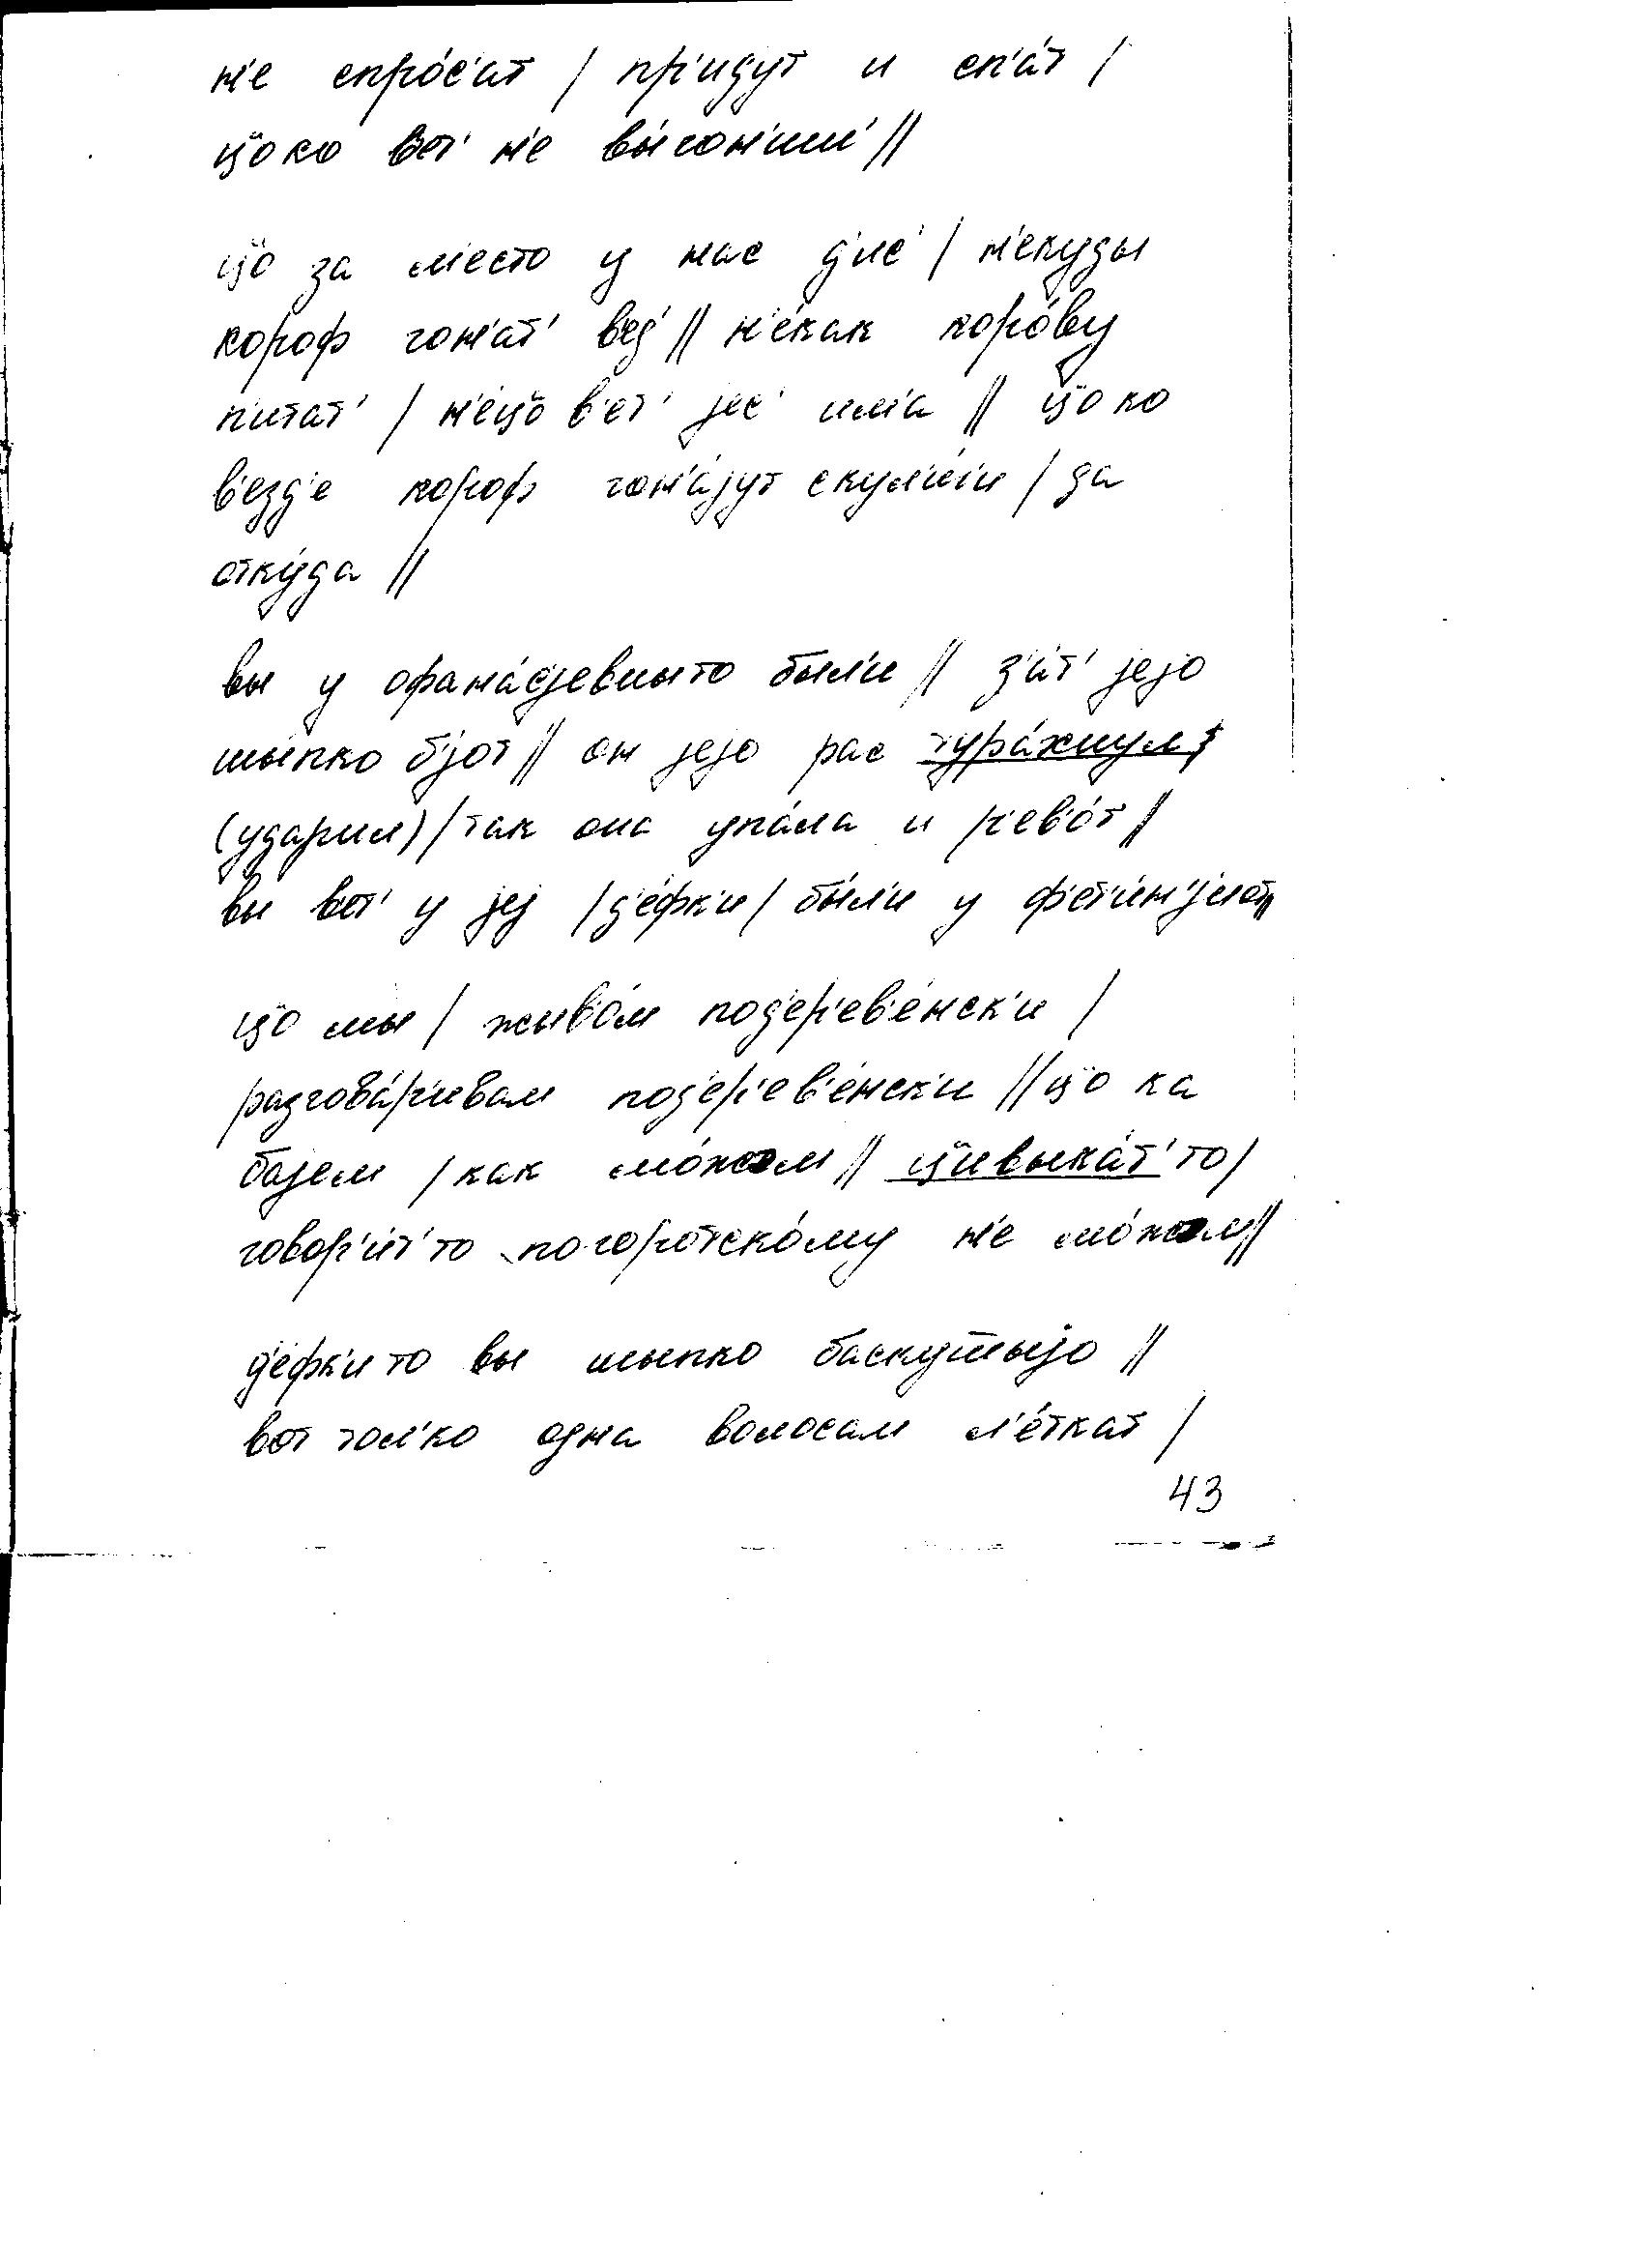 н'е спро́с'ат / пр'идут и сп'а́т /
ц̌око вет' н'е вы́гон'иш' //
ц̌о за м'есто у нас д'ис' / н'екуды
короф гон'ат' в'ед' // н'е́как коро́ву
п'итат' / н'е́ц̌о в'ет' јес' им'а // ц̌о ко
в'езд'е короф гон'а́јут скул'и́л'и / да
отку́да //
вы у офана́сјевныто был'и // з'ат' јејо
шы́пко б'јот // он јејо рас тура́хнул
(ударил) / так она упа́ла и р'ев'о́т //
вы вет' у јеј / д'е́фк'и / бы́л'и у ф'ет'и́н'јито //
ц̌о мы / жыв'о́м под'ер'ев'е́нск'и /
разгова́р'ивам под'ер'ев'е́нск'и // ц̌о ка
бајем / как мо́жом // ц̌ивыка́т'то /
говор'и́т'то погоротско́му н'е мо́жом //
д'е́фк'ито вы шыпко баскушшыјо //
вот тол'ко одна волосам л'е́ткат /
43